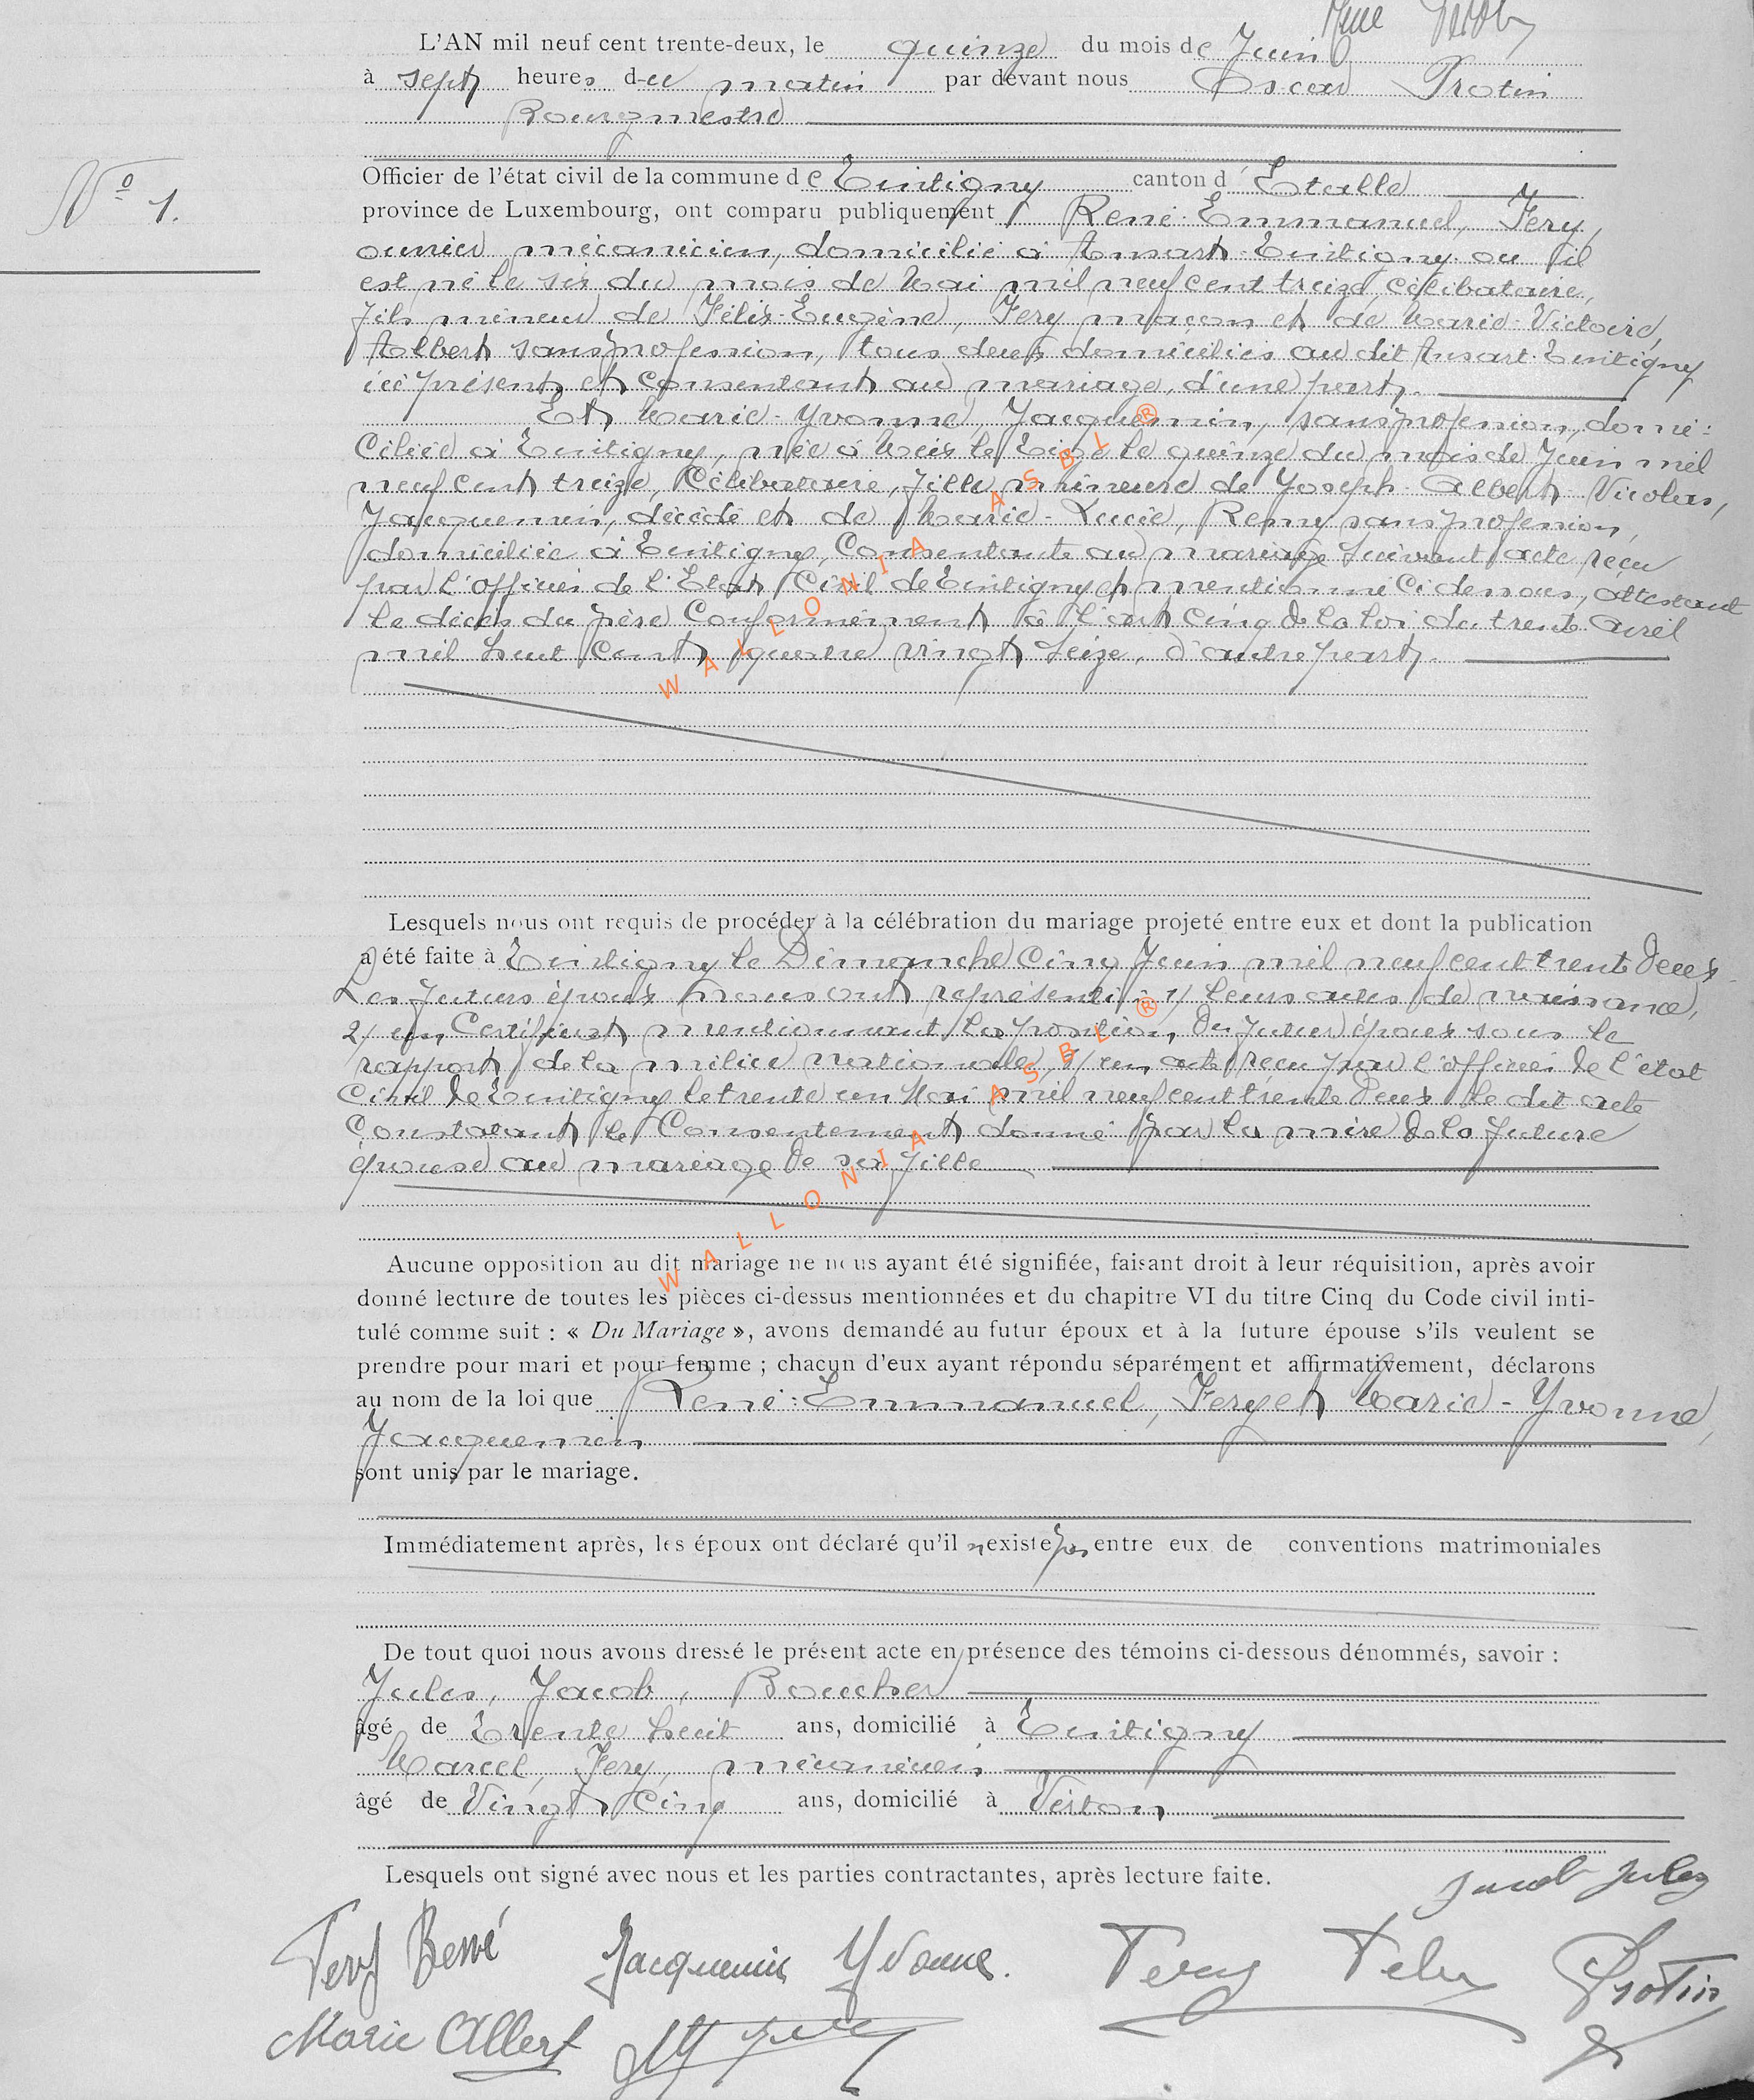 L'AN mil neuf cent trente-deux, le quinze du mois de Juin
à sept heures du matin par devant nous Oscar Protin
Bourgmestre
Officier de l'état civil de la commune de Tintigny canton d'Etalle
N° 1.
province de Luxembourg, ont comparu publiquement René-Emmanuel, Fery,
ouvrier mécanicien, domicilié à Ansart-Tintigny où il
est né le six du mois de Mai mil neuf cent treize, célibataire,
fils mineur de Félix-Eugène, Fery maçon et de Marie-Victoire,
Albert sans profession, tous deux domiciliés au dit Ansart-Tintigny
ici présent et consentant au mariage, d'une part.
Et Marie-Yvonne, Jacquemin, sans profession, domi-
ciliée à Tintigny, née à Meix le Tige le quinze du mois de Juin mil
neuf cent treize, Célibataire, fille mineure de Joseph-Albert-Nicolas,
Jacquemin, décédé et de Marie-Lucie, Remy sans profession,
domiciliée à Tintigny, Consentante au mariage suivant acte reçu
par l'officier de l'Etat Civil de Tintigny et mentionné ci dessous, attestant
le décès du père Conformément à l'art cinq de la loi du trente Avril
mil huit cent quatre vingt seize, d'autre part.
Lesquels nous ont requis de procéder à la célébration du mariage projeté entre eux et dont la publication
a été faite à Tintigny le Dimanche cinq Juin mil neuf cent trente deux
Les futurs époux nous ont représenté: 1/ leurs actes de naissance,
2/ un Certificat mentionnant la position du futur époux sous le
rapport de la milice nationale, 3/ un acte reçu par l'officier de l'état
Civil de Tintigny le trente un Mai mil neuf cent trente deux le dit acte
Constatant le Consentement donné par la mère de la future
épouse au mariage de sa fille
Aucune opposition au dit mariage ne nous ayant été signifiée, faisant droit à leur réquisition, après avoir
donné lecture de toutes les pièces ci-dessus mentionnées et du chapitre VI du titre Cinq du Code civil inti-
tulé comme suit : « Du Mariage », avons demandé au futur époux et à la future épouse s'ils veulent se
prendre pour mari et pour femme ; chacun d'eux ayant répondu séparément et affirmativement, déclarons
au nom de la loi que René-Emmanuel, Fery et Marie-Yvonne,
Jacquemin
sont unis par le mariage.
Immédiatement après, les époux ont déclaré qu'il n'existe pas entre eux de conventions matrimoniales
De tout quoi nous avons dressé le présent acte en présence des témoins ci-dessous dénommés, savoir :
Jules, Jacob, Boucher
âgé de Trente huit ans, domicilié à Tintigny
Marcel, Fery, mécanicien
âgé de Vingt Cinq ans, domicilié à Virton
Lesquels ont signé avec nous et les parties contractantes, après lecture faite.
Jacob Jules
Fery René Jacquemin Yvonne. Fery Felix Protin
Marie Albert
WALLONIA ASBL ®
WALLONIA ASBL ®